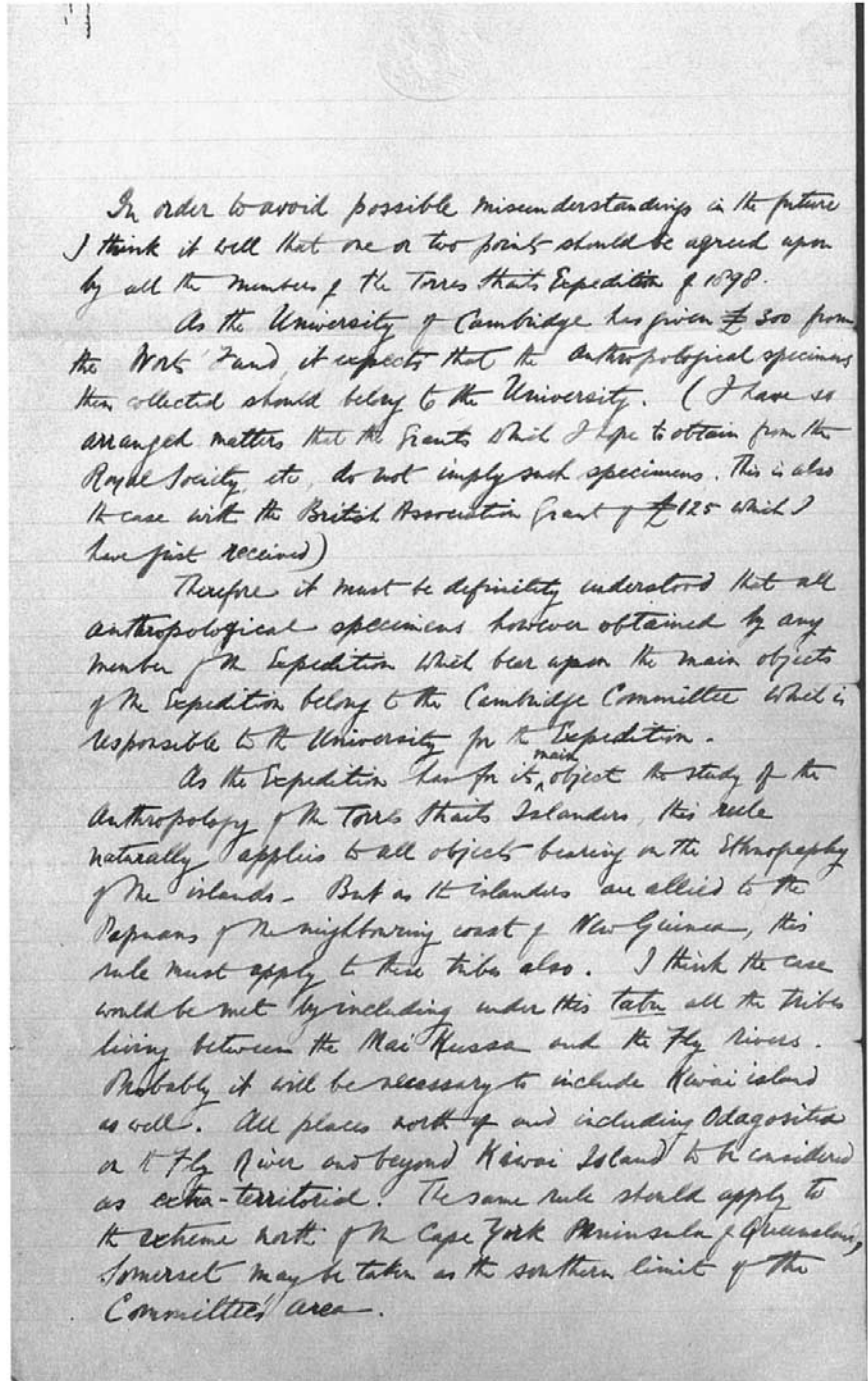 In order to avoid possible misunderstandings in the future
I think it well that one or two points should be agreed upon
by all the members of the Torres Straits Expedition of 1898.
As the University of Cambridge has given £300 from
the Worts' Fund, it expects that the anthropological specimens
then collected should belong to the University. (I have so
arranged matters that the Grants which I hope to obtain from the
Royal Society, etc, do not imply such specimens. This is also
the case with the British Association Grant of £125 which I
have just received)
Therefore it must be definitely understood that all
anthropological specimens however obtained by any
member of the Expedition which bear upon the main objects
of the Expedition belong to the Cambridge Committee which is
responsible to the University for the Expedition.
As the Expedition has for its main object the study of the
Anthropology of the Torres Straits Islanders, this rule
naturally applies to all objects bearing on the Ethnography
of the islands - But as the islanders are allied to the
Papuans of the neighbouring coast of New Guinea, this
rule must apply to these tribes also. I think the case
would be met by including under this tabu all the tribes
living between the Mai Kussa and the Fly rivers.
Probably it will be necessary to include Kiwai island
as well. All places north of and including Odagositia
on the Fly River and beyond Kiwai Island to be considered
as extra-territorial. The same rule should apply to
the extreme north of the Cape York Peninsula of Queensland,
Somerset may be taken as the southern limit of the
Committee's area.